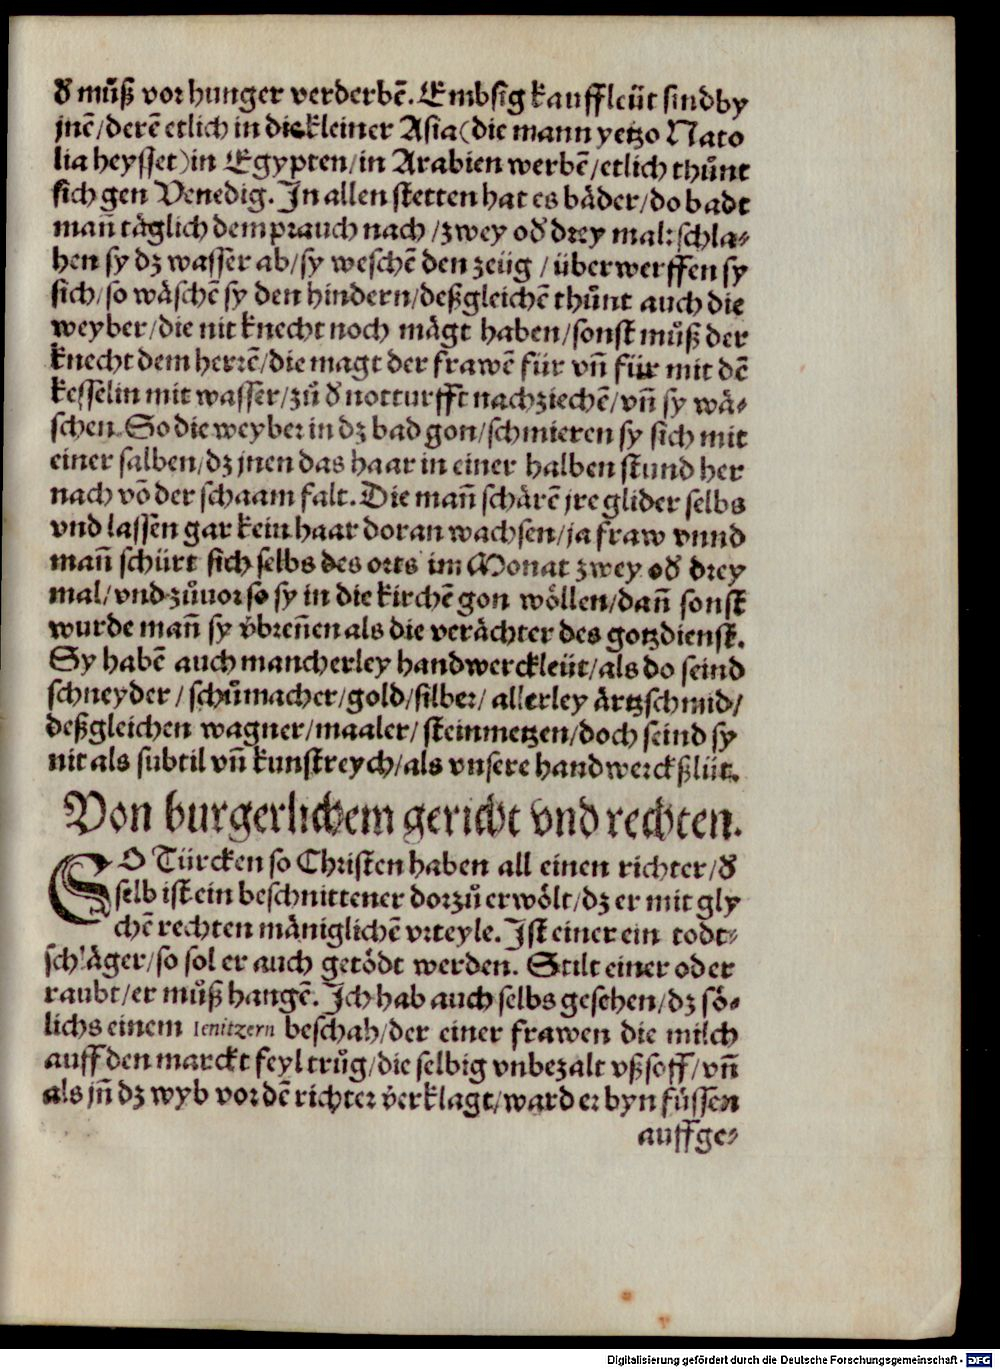 đ můß vor hunger verderbẽ. Embsig kauffleüt sind by
jnẽ/derẽ etlich in die kleiner Asia (die mann yetzo Nato
lia heysset) in Egypten/in Arabien werbẽ/etlich thůnt
sich gen Venedig. In allen stetten hat es bäder/do badt
mañ täglich dem prauch nach/zwey ođ drey mal: schla⸗
hen sy dz wasser ab/sy weschẽ den zeüg/überwerffen sy
sich/so wäschẽ sy den hindern/deßgleichẽ thůnt auch die
weyber/die nit knecht noch mägt haben/sonst můß der
knecht dem herrẽ/die magt der frawẽ für vñ für mit dẽ
kesselin mit wasser/zů đ notturfft nachziechẽ/vñ sy wä⸗
schen. So die weyber in dz bad gon/schmieren sy sich mit
einer salben/dz jnen das haar in einer halben stund her
nach võ der schaam falt. Die mañ schärẽ jre glider selbs
vnd lassen gar kein haar doran wachsen/ja fraw vnnd
mañ schürt sich selbs des orts im Monat zwey ođ drey
mal/vnd zůuor so sy in die kirchẽ gon wöllen/dañ sonst
wurde mañ sy v̈breñen als die verächter des gotzdienst.
Sy habẽ auch mancherley handwerckleüt/als do seind
schneyder/schůmacher/gold/silber/allerley ärtzschmid/
deßgleichen wagner/maaler/steinmetzen/doch seind sy
nit als subtil vñ kunstreych/als vnsere handwerckßlüt.
Von burgerlichem gericht vnd rechten.
SO Türcken so Christen haben all einen richter/đ
selb ist ein beschnittener dorzů erwölt/dz er mit gly
chẽ rechten mäniglichẽ vrteyle. Ist einer ein todt⸗
schläger/so sol er auch getödt werden. Stilt einer oder
raubt/er můß hangẽ. Ich hab auch selbs gesehen/dz sö⸗
lichs einem Ienitzern beschah/der einer frawen die milch
auff den marckt feyl trůg/die selbig vnbezalt vßsoff/vñ
als jñ dz wyb vor dẽ richter v̈erklagt/ward er byn füssen
auffge⸗
Digitalisierung gefördert durch die Deutsche Forschungsgemeinschaft - DFG